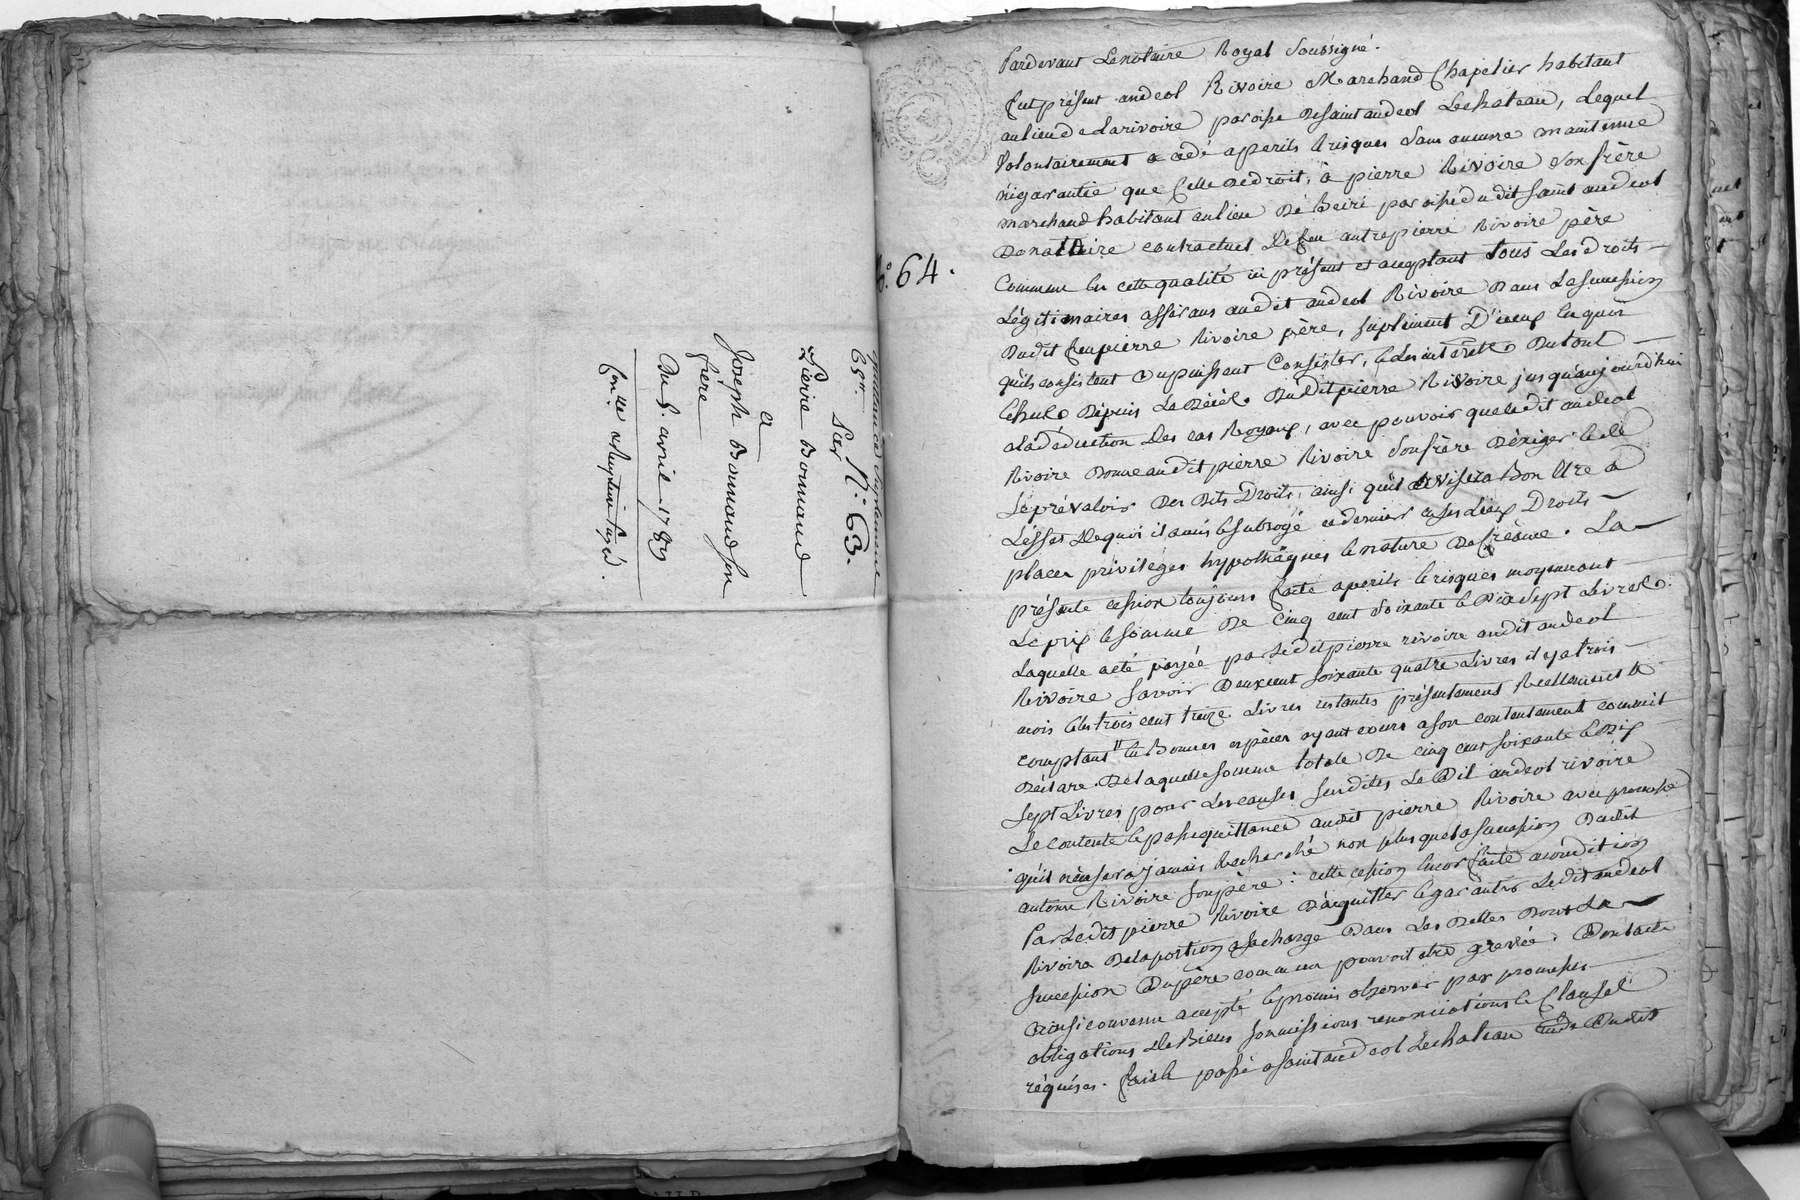 quittance supleiment
N.º 63.
Par
Pierre Bonnaud
a
Joseph Bonnaud son
frere
Du 5. avril 1789
Con.lle et Insinué Payés.
N.º 64.
Pardevant Le notaire Royal Soussigné.
fut présent andeol Rivoire Marchand Chapelier habitant
au lieu de Larivoire paroisse de saint andeol Lechateau, Lequel
Volontairement a cédé a perils & risques sans aucune maintenue
ni garantie que Celle de droit, à pierre Rivoire Son frère
marchand habitant au lieu De paroisse du dit saint andeol
Donataire contractuel De feu autre pierre Rivoire père
Comme En cette qualité ici présent et acceptant Tous Les droits
Légitimaires afférans audit andeol Rivoire Dans La succession
Dudit feu pierre Rivoire père, supleiment D'iceux En quoi
quils consistent ou puissent Consister, & Les intérêts Du tout
Echus Depuis Le Décés Dudit pierre Rivoire jusqu'aujourd'hui
a la déduction Des cas Royaux, avec pouvoir que Ledit andeol
Rivoire Donne audit pierre Rivoire Son frère D'exiger & de
Se prévaloir Des Dits Droits, ainsi qu'il avisera Bon Etre a
L'effet De quoi il a mis & subrogé ce dernier en ses Lieux Droits
places privilèges hypothèques & nature De Créance. La
présente cession toujours faite a perils & risques moyennant
Le prix & somme De Cinq cent Soixante & Dix sept Livres
Laquelle a été payée par Ledit pierre rivoire audit andeol
Rivoire savoir Deux cent soixante quatre Livres il y a trois
mois & Les trois cent treize Livres restantes présentement Réellement &
comptant En Bonnes espèces ayant cours a son contentement comme il
Déclare. De laquelle somme totale De cinq cent soixante & Dix
sept Livres pour Les causes susdites Le Dit andeol rivoire
Se contente & passe quittance audit pierre Rivoire avec promesse
qu'il n'en sera jamais Recherché non plus que la succession Dudit
antoine Rivoire son père : cette cession Encor faite a condition
Par Ledit pierre Rivoire D'acquitter & garantir Ledit andeol
Rivoire De la portion a sa charge Dans Les Dettes Dont La
succession Du père commun pouvoit être grevée. Dont acte
ainsi convenu accepté & promis observer par promesses
obligations De Biens soumissions renonciations & Clauses
réquises. fait & passé a saint andeol Lechateau Dudit